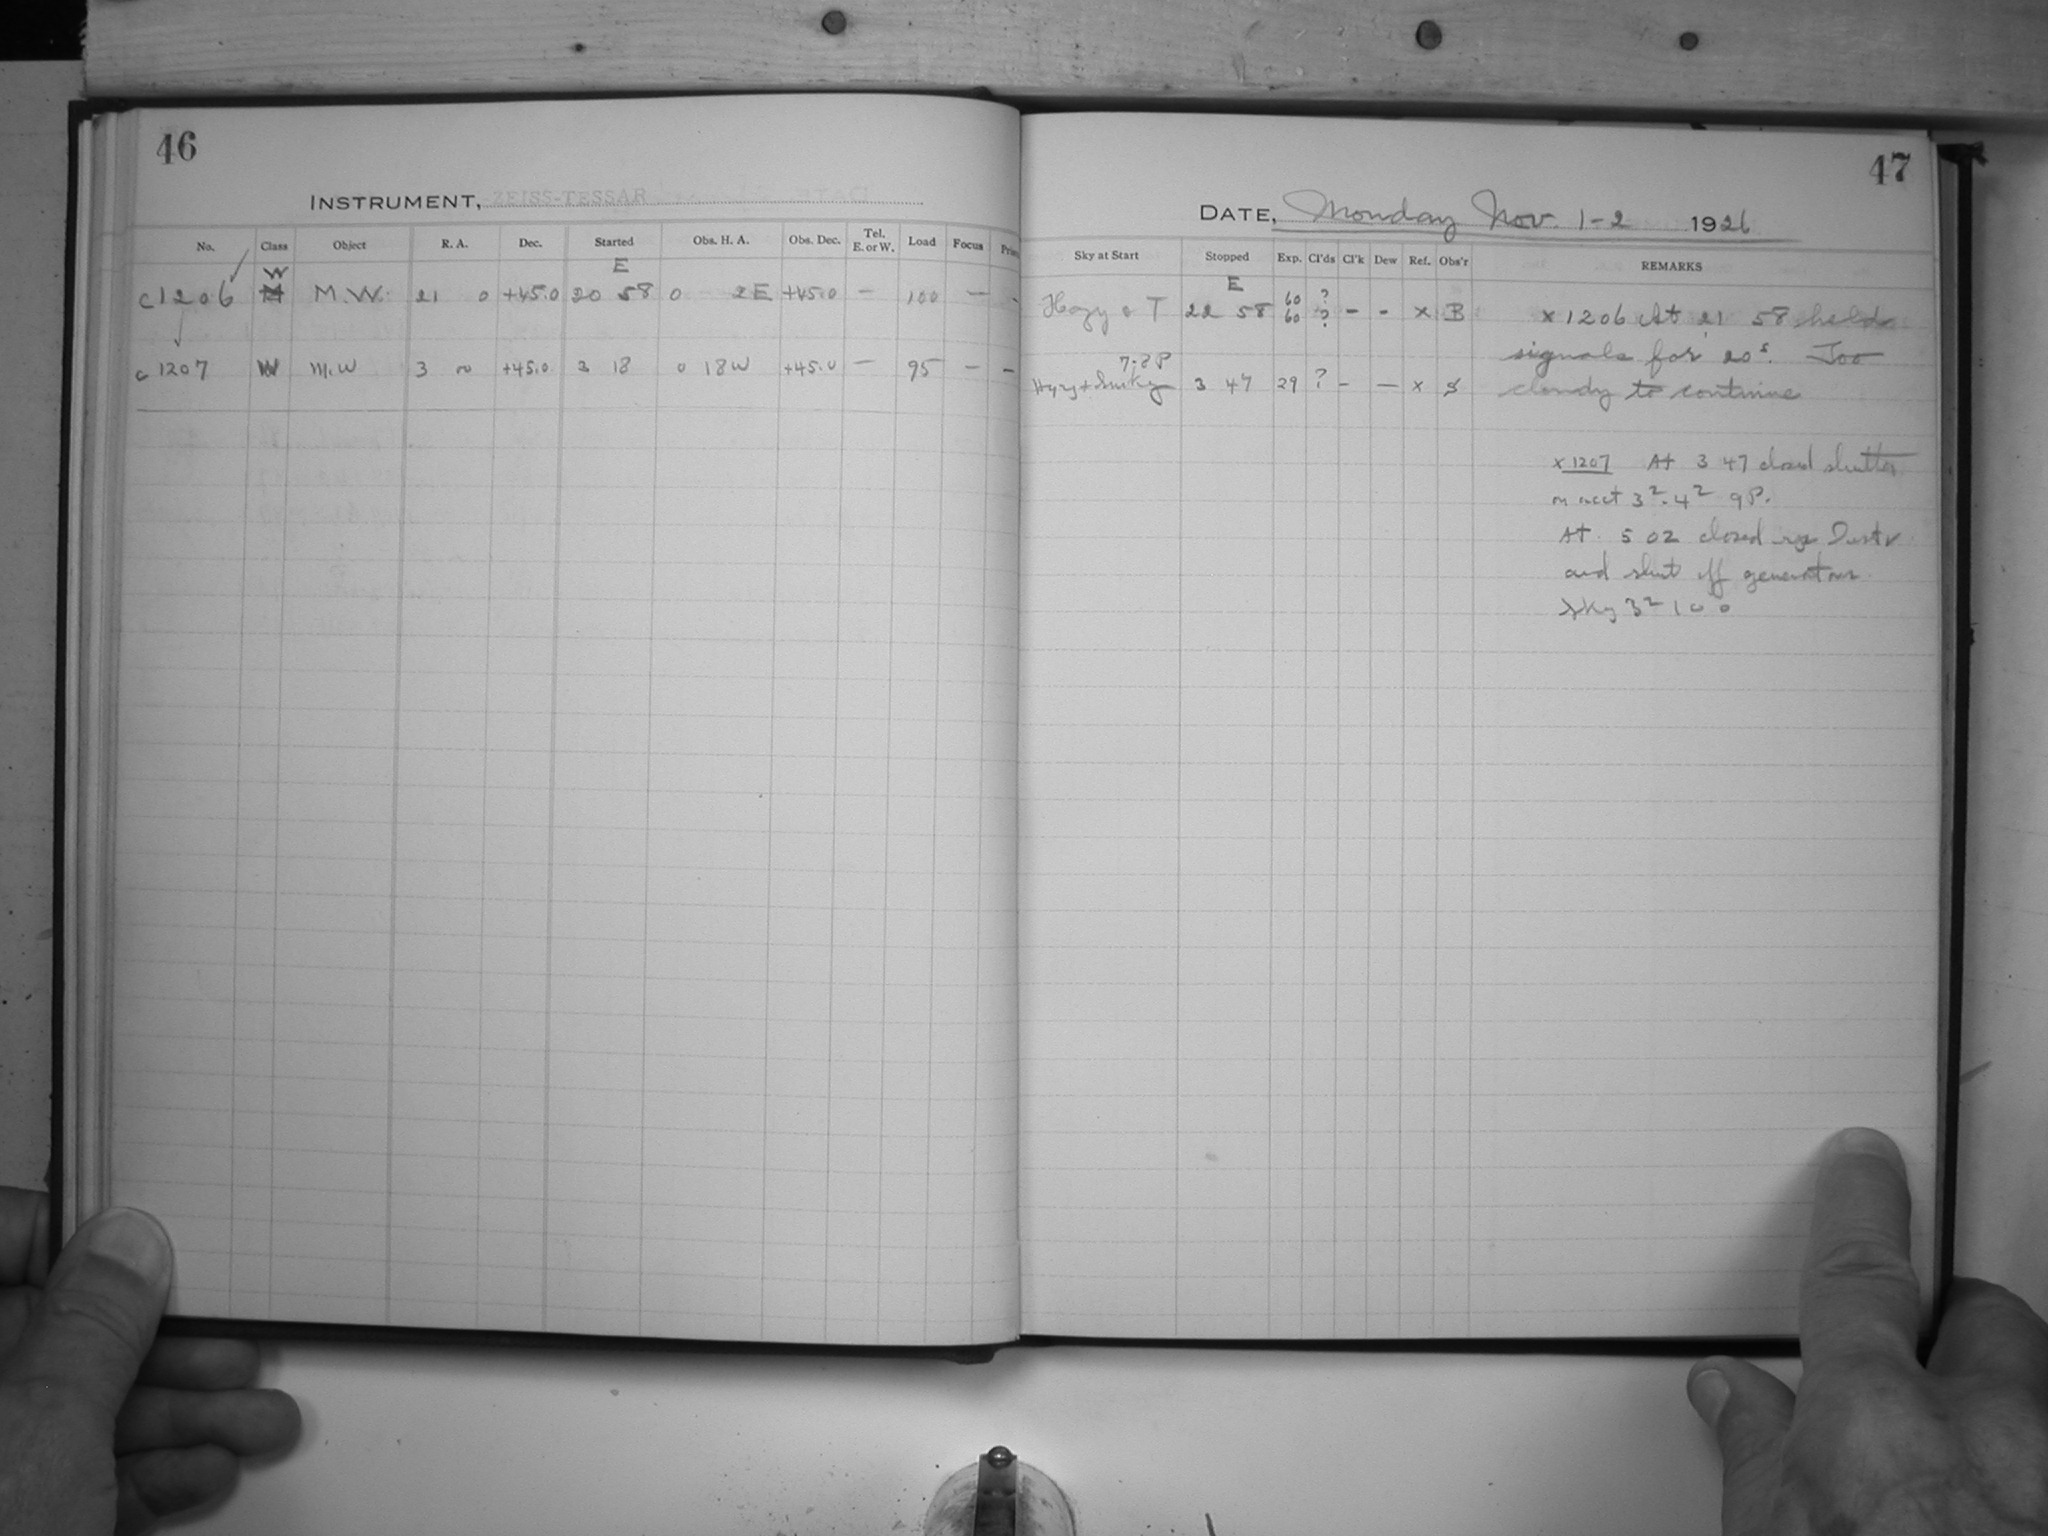 46
INSTRUMENT, ZEISS-TESSAR
No. Class Object R. A. Dec. Started Obs. H. A. Obs. Dec. Tel. E. or W. Load Focus
W E
c1206 M.W. 21 0 +45.0 20 58 0 2E +45.0 — 100 — -
c1207 W M.W 3 0 +45.0 3 18 0 18W +45.0 — 95 — —
47
DATE, Monday Nov. 1-2 1926
Sky at Start Stopped Exp. Cl'ds Cl'k Dew Ref. Obs'r REMARKS
E
Hazy & T 22 58 60 60 ? ? - - x B x 1206 At 21 58 held
signals for 20s. Too
7-8P
3 47 29 ? - — x S cloudy to continue
x 1207 At 3 47 closed shutter
on acct 3²-4² 9P.
At 5 02 closed
and shut off generators
Sky 3² 100